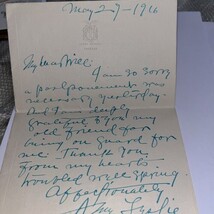 May 29-1916
My dear Will
I am so sorry
a postponement was
necessary yesterday.
And I am deeply
grateful to you my
old friend for
being on guard for
me. Thank you
from my heart's
troubled well spring.
Affectionately
Amy Leslie